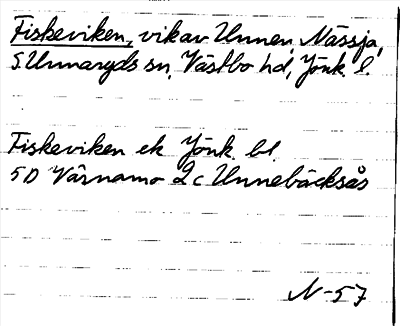 Fiskeviken, vik av Unnen, Nässja,
S Unnaryds sn, Västbo hd, Jönk. l.
Fiskeviken ek Jönk. bl.
5D Värnamo 2c Unnebäcksås
N-57